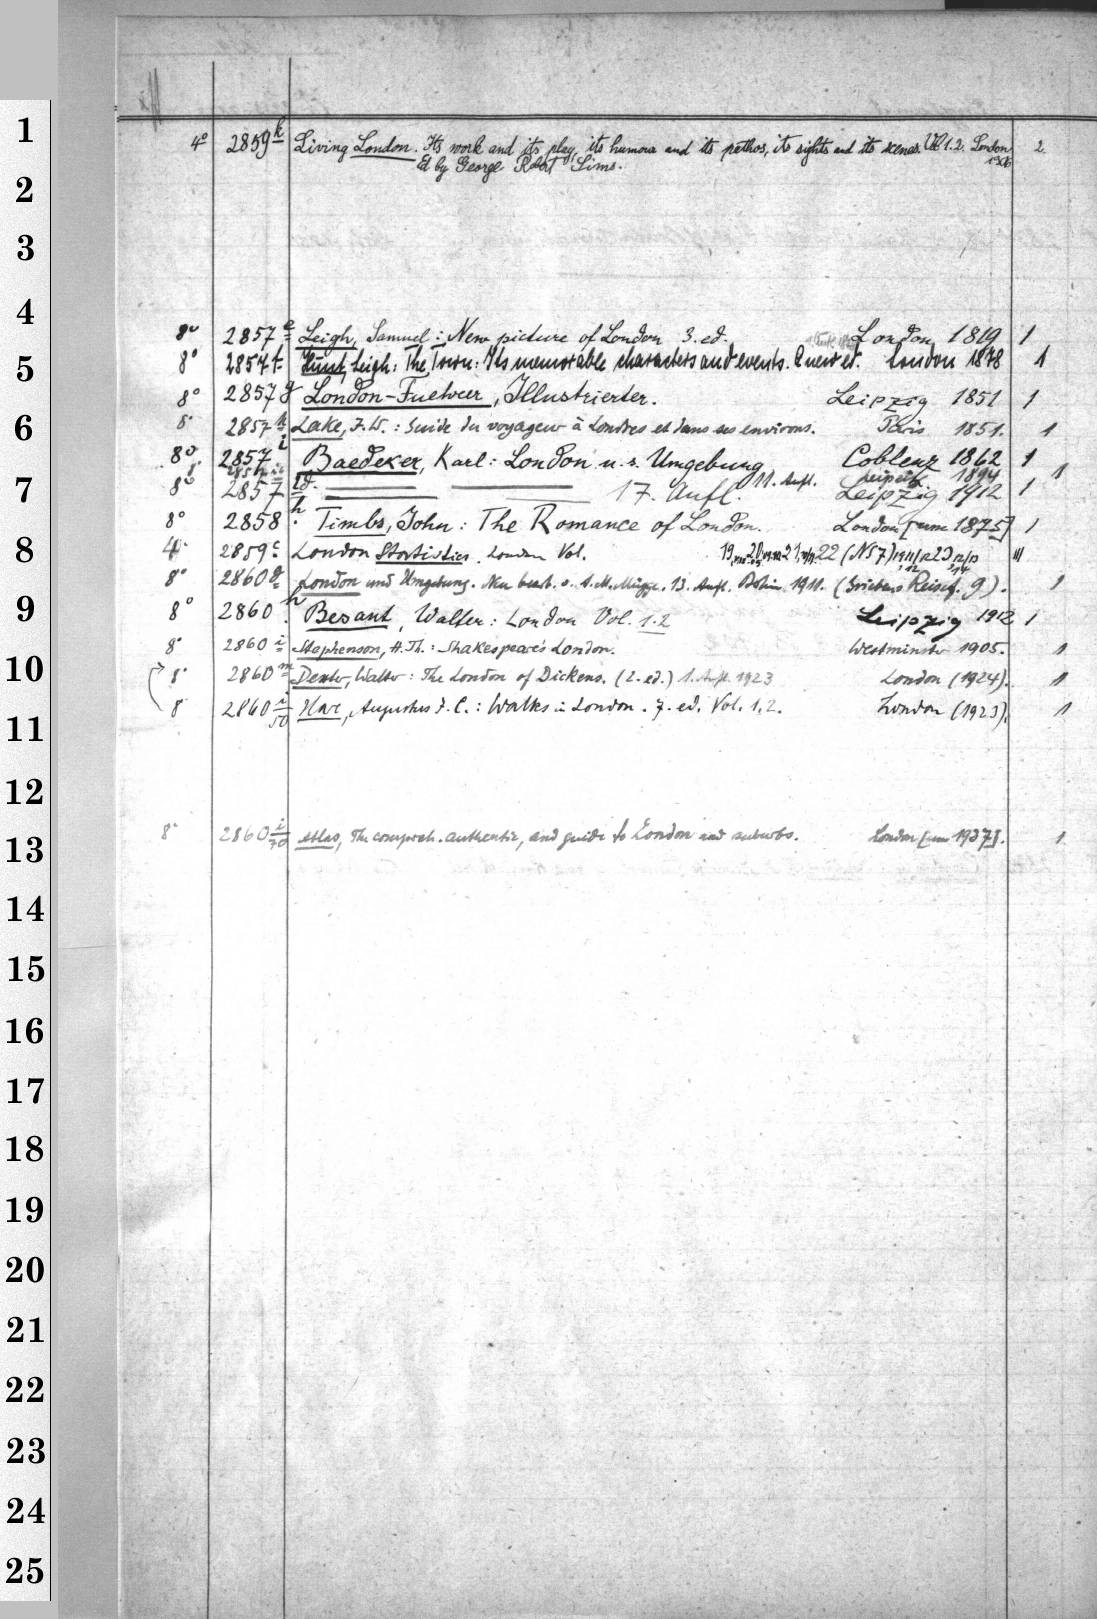 4° 2859 k Living London. Its work and its play, its humour and its pathos, its sights and its scenes. Vol 1.2. London 2
Ed by George Robert Sims.
8° 2857 e Leigh, Samuel: New picture of London 3. ed. London 1819 1
8° 2857 f Hunt, Leigh: The Town: Its memorable characters and events. A new ed. London 1878 1
8° 2857 g London-Fuehrer, Illustrierter. Leipzig 1851 1
8° 2857 h Lake, J. W.: Guide du voyageur à Londres et dans ses environs. Paris 1851. 1
8° 2857 i Baedeker, Karl: London u. s. Umgebung Coblenz 1862 1
8° 11. Aufl. Leipzig 1894 1
8° 2857 17. Aufl. Leipzig 1912 1
8° 2858 h Timbs, John: The Romance of London. London [um 1875] 1
4° 2859 c London Statistics. London Vol. 19, 20 21, 22 (N.S. 7) 23
8° 2860 g London und Umgebung. Neu bearb. v. A. M. Mügge. 13. Aufl. Berlin 1911. (Griebens Reisef. 9). 1
8° 2860 h Besant, Walter: London Vol. 1.2 Leipzig 1912 1
8° 2860 i Stephenson, H. Th.: Shakespeare's London. Westminster 1905. 1
8° 2860 m Dexter, Walter: The London of Dickens. (2. ed.) 1. Aufl. 1923 London (1924). 1
8° 2860 i/50 Hare, Augustus J. C.: Walks in London. 7. ed. Vol. 1.2. London (1923). 1
8° 2860 i/70 Atlas, The compreh. authentic, and guide to London and suburbs. London [um 1937]. 1
1
2
3
4
5
6
7
8
9
10
11
12
13
14
15
16
17
18
19
20
21
22
23
24
25